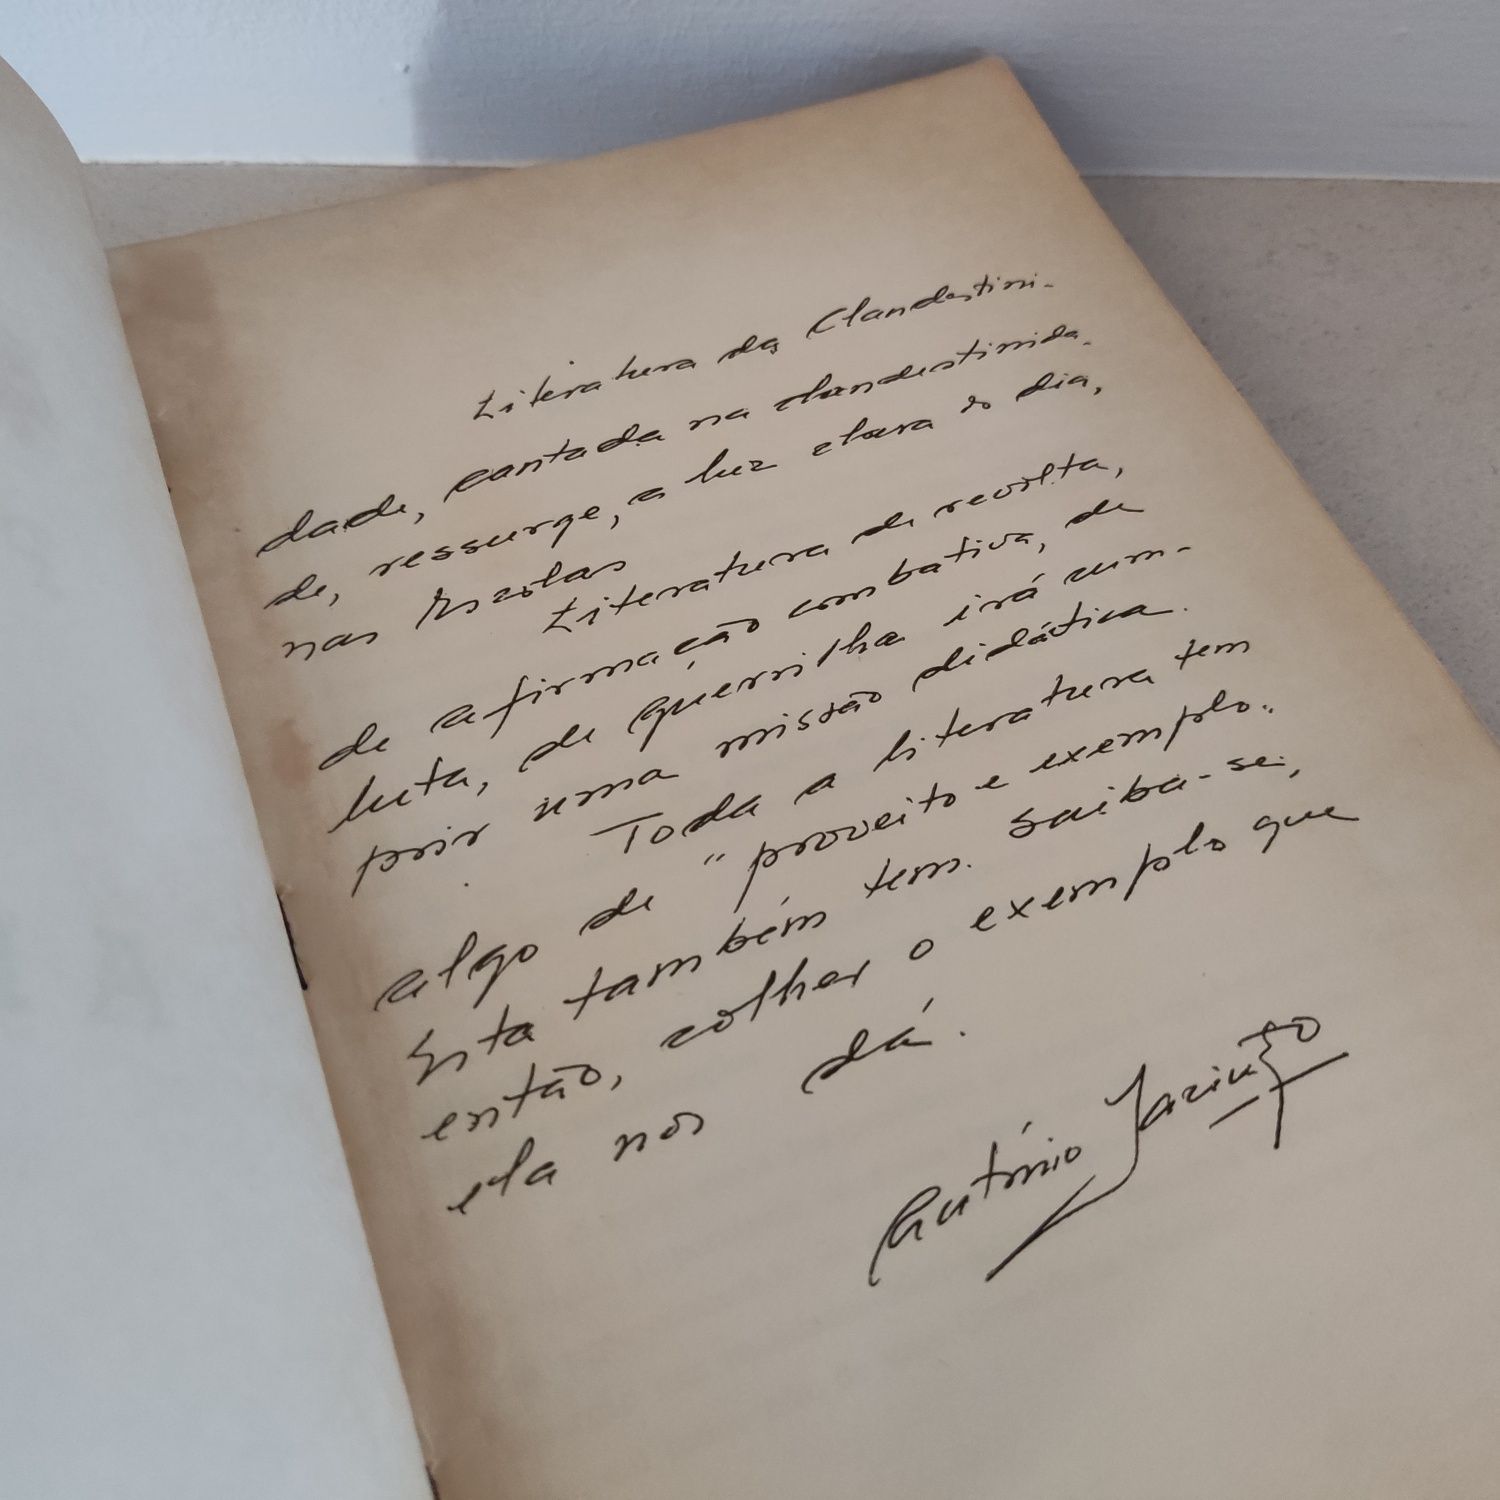 Literatura da Clandestini-
dade, cantada na clandestinida-
de, ressurge, a luz clara do dia,
nas Escolas
Literatura de revolta,
de afirmação combativa, de
luta, de guerrilha irá cum-
prir uma missão didática.
Toda a literatura tem
algo de "proveito e exemplo".
Esta também tem. Saiba-se,
então, colher o exemplo que
ela nos dá.
António Jacinto